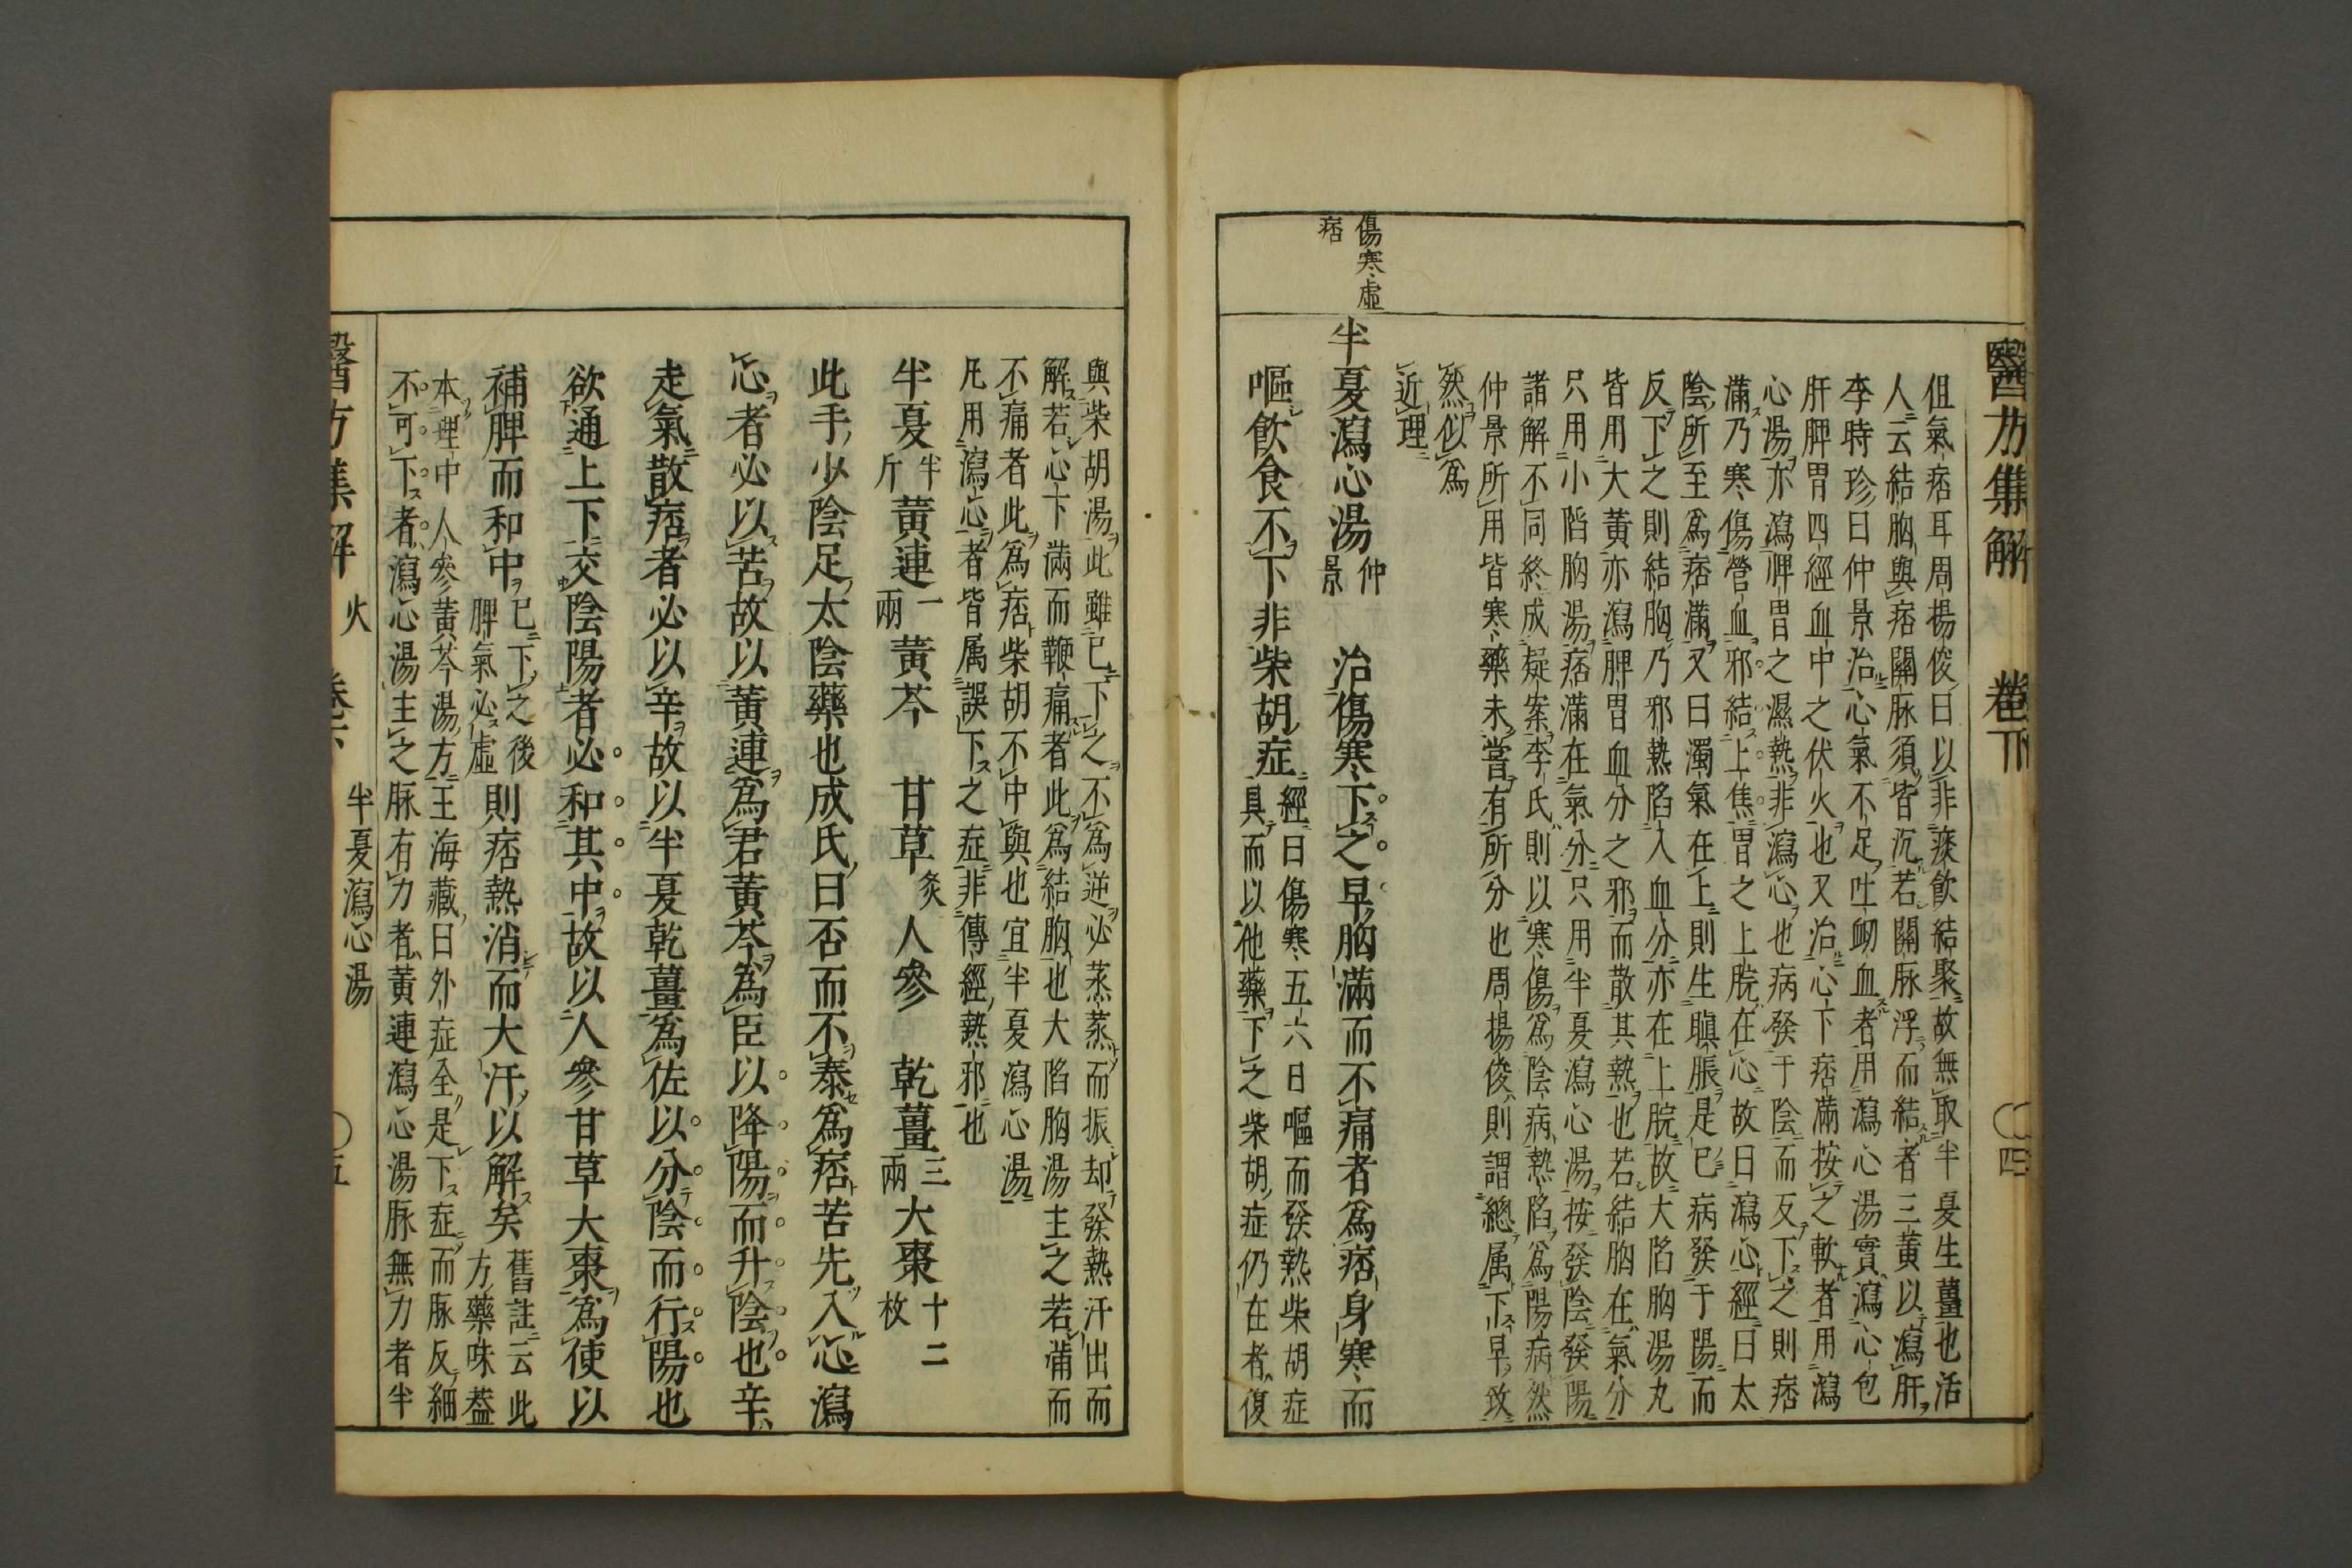 醫方集解 卷下 四
但氣痞耳周揚俊曰以非痰飲結聚故無取半夏生薑也活
人云結胸與痞關脉須皆沉若關脉浮而結者三黄以瀉肝
李時珍曰仲景治心氣不足吐衂血者用瀉心湯實瀉心包
肝脾胃四經血中之伏火也又治心下痞滿按之軟者用瀉
心湯亦瀉脾胃之濕熱非瀉心也病發于陰而反下之則痞
滿乃寒傷營血邪結上焦胃之上脘在心故曰瀉心經曰太
陰所至爲痞滿又曰濁氣在上則生䐜脹是已病發于陽而
反下之則結胸乃邪熱陷入血分亦在上脘故大陷胸湯丸
皆用大黄亦瀉脾胃血分之邪而散其熱也若結胸在氣分
只用小陷胸湯痞滿在氣分只用半夏瀉心湯按發陰發陽
諸解不同終成疑案李氏則以寒傷爲陰病熱陷爲陽病然
仲景所用皆寒藥未嘗有所分也周揚俊則謂總属下早致
然似爲
近理
傷寒虛
痞
半夏瀉心湯 仲景 治傷寒下之早胸滿而不痛者爲痞身寒而
嘔飲食不下非柴胡症 經曰傷寒五六日嘔而發熱柴胡症
具而以他藥下之柴胡症仍在者復
與柴胡湯此雖已下之不爲逆必蒸蒸而振却發熱汗出而
解若心下滿而鞕痛者此爲結胸也大陷胸湯主之若滿而
不痛者此爲痞柴胡不中與也宜半夏瀉心湯
凡用瀉心者皆属誤下之症非傳經熱邪也
半夏 半斤 黄連 一兩 黄芩 甘草 炙 人參 乾薑 三兩 大棗 十二枚
此手少陰足太陰藥也成氏曰否而不泰爲痞苦先入心瀉
心者必以苦故以黄連爲君黄芩爲臣以降陽而升陰也辛
走氣散痞者必以辛故以半夏乾薑爲佐以分陰而行陽也
欲通上下交陰陽者必和其中故以人參甘草大棗爲使以
補脾而和中 已下之後脾氣必虛 則痞熱消而大汗以解矣 舊註云此
方藥味葢
本理中人參黄芩湯方王海藏曰外症全是下症而脉反細
不可下者瀉心湯主之脉有力者黄連瀉心湯脉無力者半
醫方集解 火 卷下 半夏瀉心湯 五